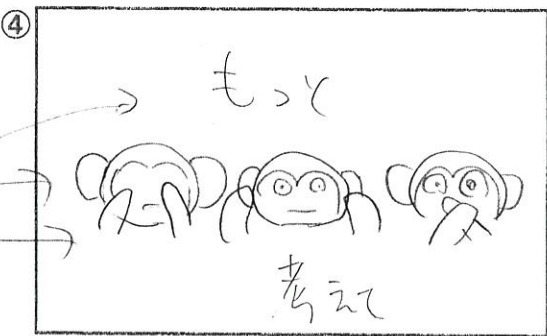 ④
もっと
考えて